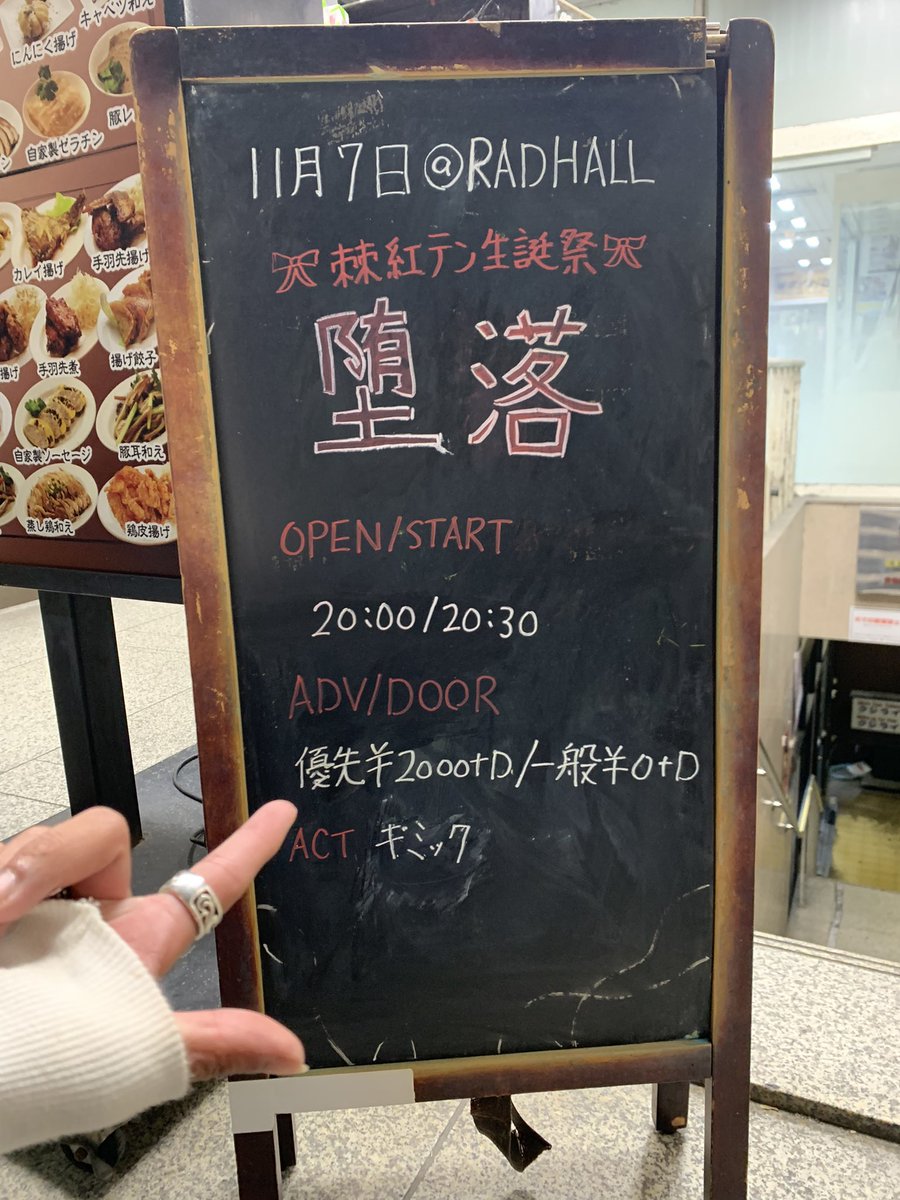 11月7日@RADHALL
棘紅テン生誕祭
堕落
OPEN/START
20:00/20:30
ADV/DOOR
優先¥2000+D/一般¥0+D
ACT ギミック
キャベツ和え
にんにく揚げ
自家製ゼラチン
豚レ
カレイ揚げ
手羽先揚げ
揚げ
手羽先煮
揚げ餃子
自家製ソーセージ
豚耳和え
蒸し鶏和え
鶏皮揚げ